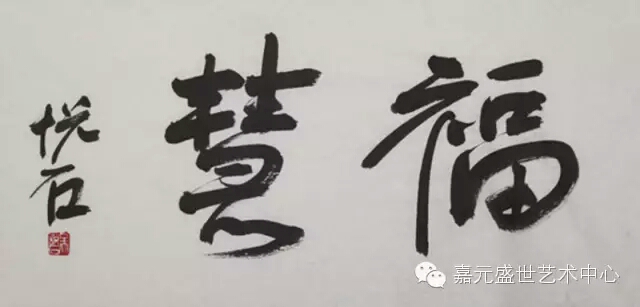 福慧
悦石
嘉元盛世艺术中心